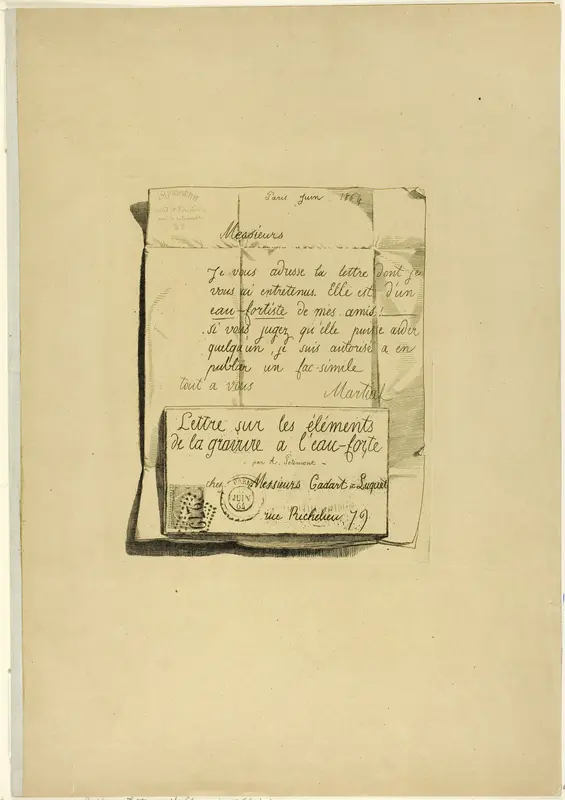 Paris Juin 1864
Messieurs
Je vous adresse la lettre dont je
vous ai entretenus. Elle est d'un
eau-fortiste de mes amis!
Si vous jugez qu'elle puisse aider
quelqu'un, je suis autorisé a en
publier un fac-simile
tout a vous Martial
Lettre sur les éléments
de la gravure a l'eau-forte
par A.
chez Messieurs Cadart & Luquet
PARIS
JUIN
64
rue Richelieu, 79